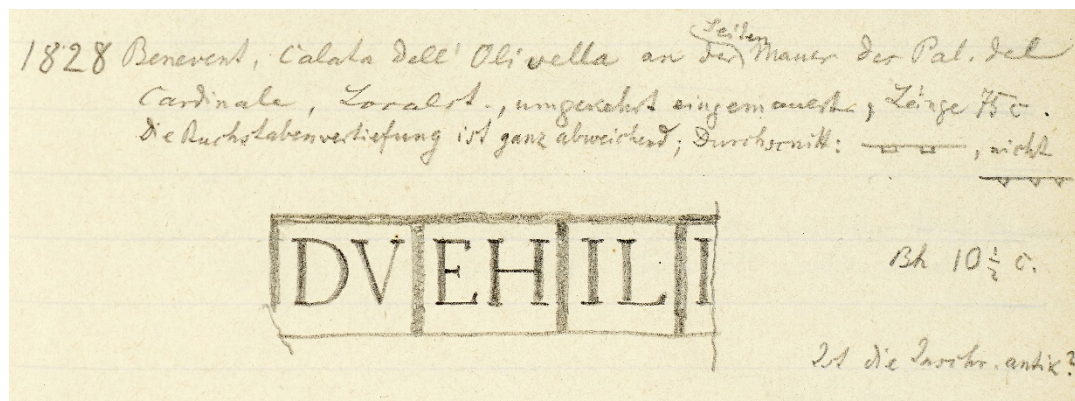 1828 Benevent, Calata dell' Olivella an der Seiten Mauer des Pal. del
Cardinale, Localst., umgekehrt eingemauert, Länge 75 c.
Die Buchstabenvertiefung ist ganz abweichend; Durchschnitt: , nicht
DV EH IL I
Bh 10 1/2 c.
Ist die Inschr. antik?